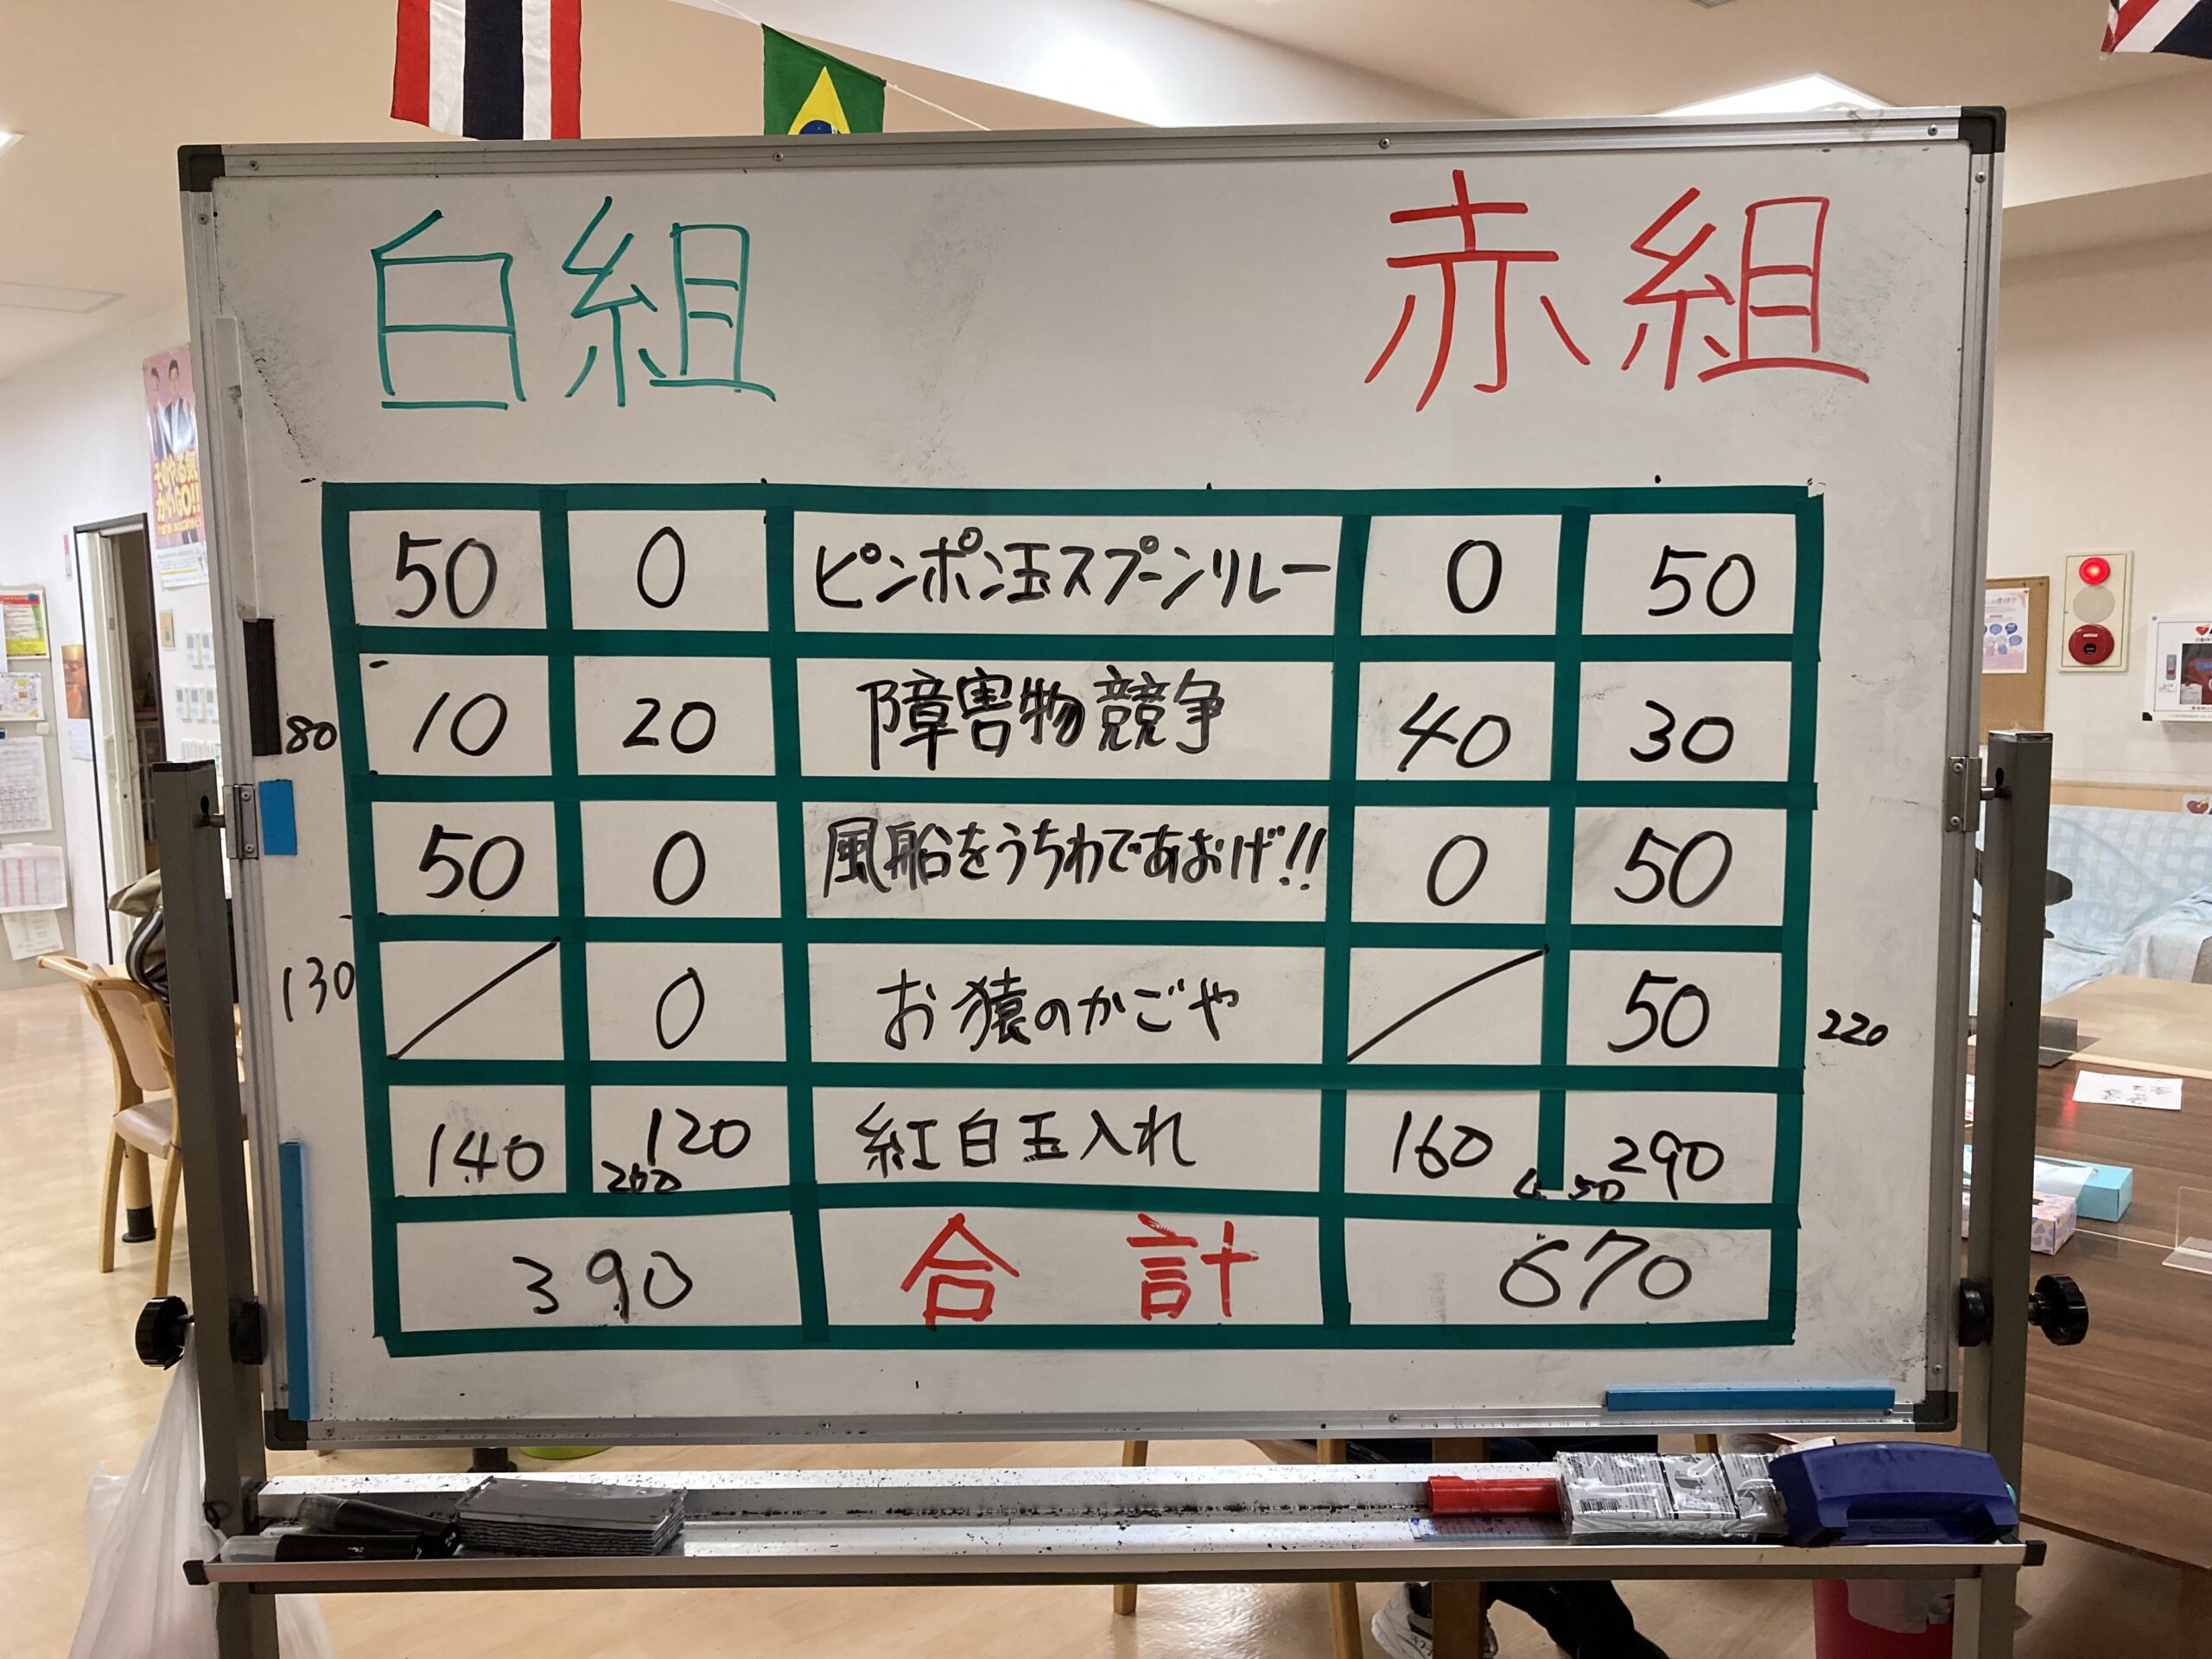 白組 赤組
50 0 ピンポン玉スプーンリレー 0 50
10 20 障害物競争 40 30
80
50 0 風船をうちわであおげ!! 0 50
130 0 お猿のかごや 50 220
140 120 紅白玉入れ 160 290
260 450
390 合計 670